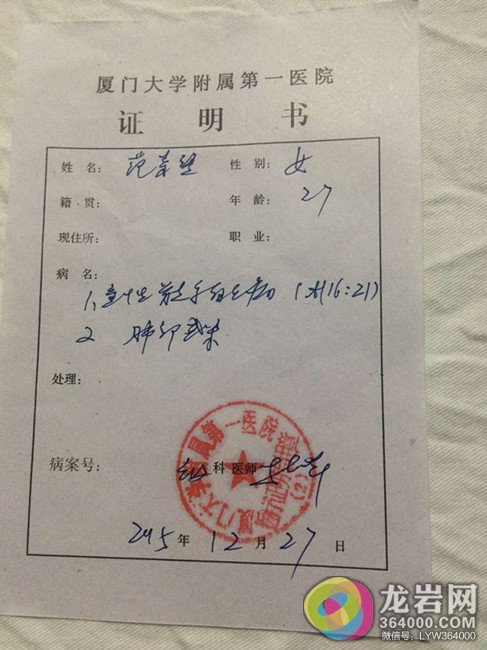 厦门大学附属第一医院
证明书
姓名： 范 性别：女
籍贯： 年龄：27
现住所： 职业：
病名：
1. 急性 白血病 (16:21)
2 肺部感染
处理：
厦门大学附属第一医院
(2)
病案号： 科 医师
2015年12月27日
龙岩网
364000.COM
微信号：LYW364000